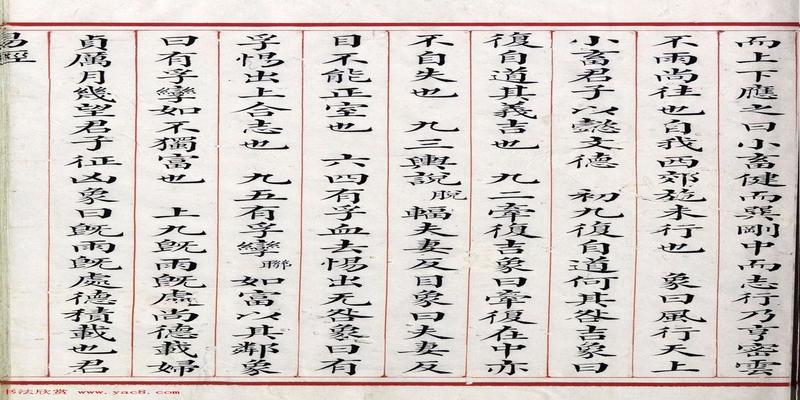 而上下應之曰小畜健而巽剛中而志行乃亨密雲
不雨尚往也自我西郊施未行也 象曰風行天上
小畜君子以懿文德 初九復自道何其咎吉象曰
復自道其義吉也 九二牽復吉象曰牽復在中亦
不自失也 九三輿說脫輻夫妻反目象曰夫妻反
目不能正室也 六四有孚血去惕出无咎象曰有
孚惕出上合志也 九五有孚攣聯如富以其鄰象
曰有孚攣如不獨富也 上九旣雨旣處尚德載婦
貞厲月幾望君子征凶象曰旣雨旣處德積載也君
易經
书法欣赏 www.yac8.com